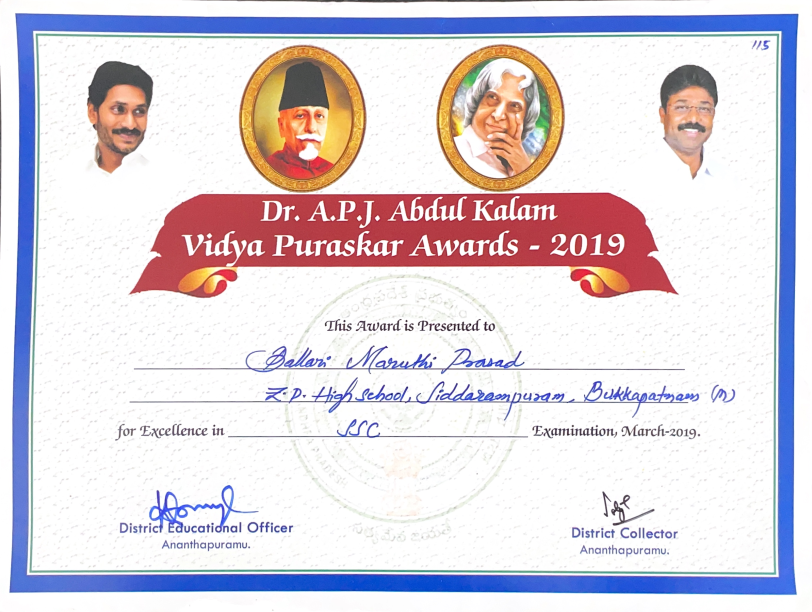 115
Dr. A.P.J. Abdul Kalam
Vidya Puraskar Awards - 2019
This Award is Presented to
Ballari Maruthi Prasad
Z.P. High school, Siddarampuram, Bukkapatnam (M)
for Excellence in SSC Examination, March-2019.
District Educational Officer
Ananthapuramu.
District Collector
Ananthapuramu.